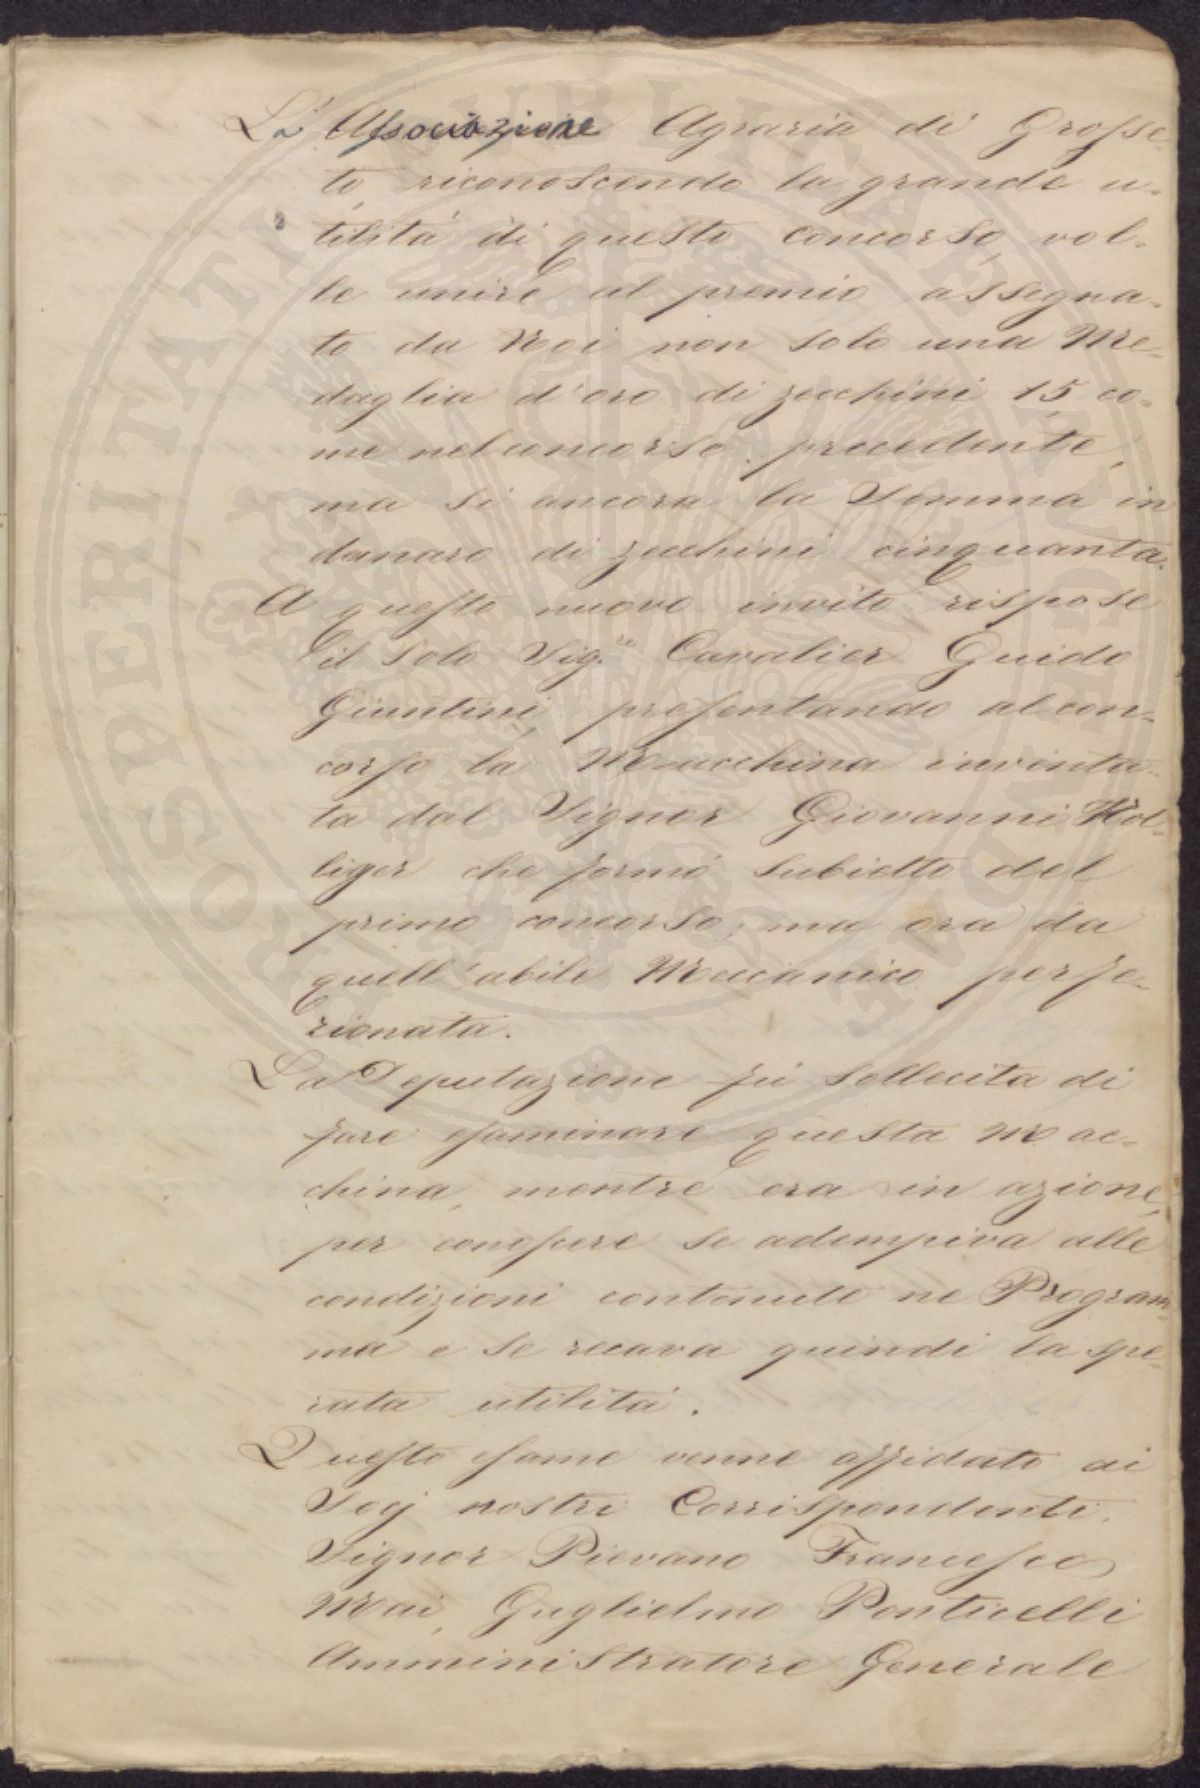 La Associazione Agraria di Grosse-
to, riconoscendo la grande u-
tilità di questo concorso, vol-
le unire al premio assegna-
to da Noi non solo una Me-
daglia d'oro di zecchini 15, co-
me nel concorso precedente,
ma si ancora la Somma in
danaro di zecchini cinquanta.
A questo nuovo invito rispose
il solo Sig.re Cavalier Guido
Giuntini, presentando al con-
corso la Macchina inventa-
ta dal Signor Giovanni Hol-
liger che formò subietto del
primo concorso, ma ora da
quell'abile Meccanico perfe-
zionata.
La Deputazione fu sollecita di
fare esaminare questa Mac-
china, mentre era in azione,
per conoscere se adempiva alle
condizioni contenute ne Program-
ma e se recava quindi la spe-
rata utilità.
Questo esame venne affidato ai
Socj nostri Corrispondenti,
Signor Pievano Francesco
Mai, Guglielmo Ponticelli
Amministratore Generale
PROSPERITATI PUBLICAE AUGENDAE